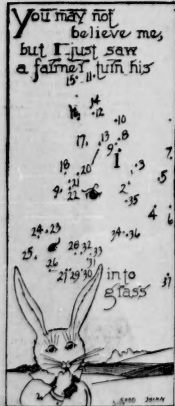 You may not
believe me,
but I just saw
a farmer turn his
15 11
14
16 12
10
17 13 8
9
1 7
18 20 3
5
21 2
9 22
35
4 6
24 23 34 36
28 32
25 33
26 31
27 29 30
into
37
grass